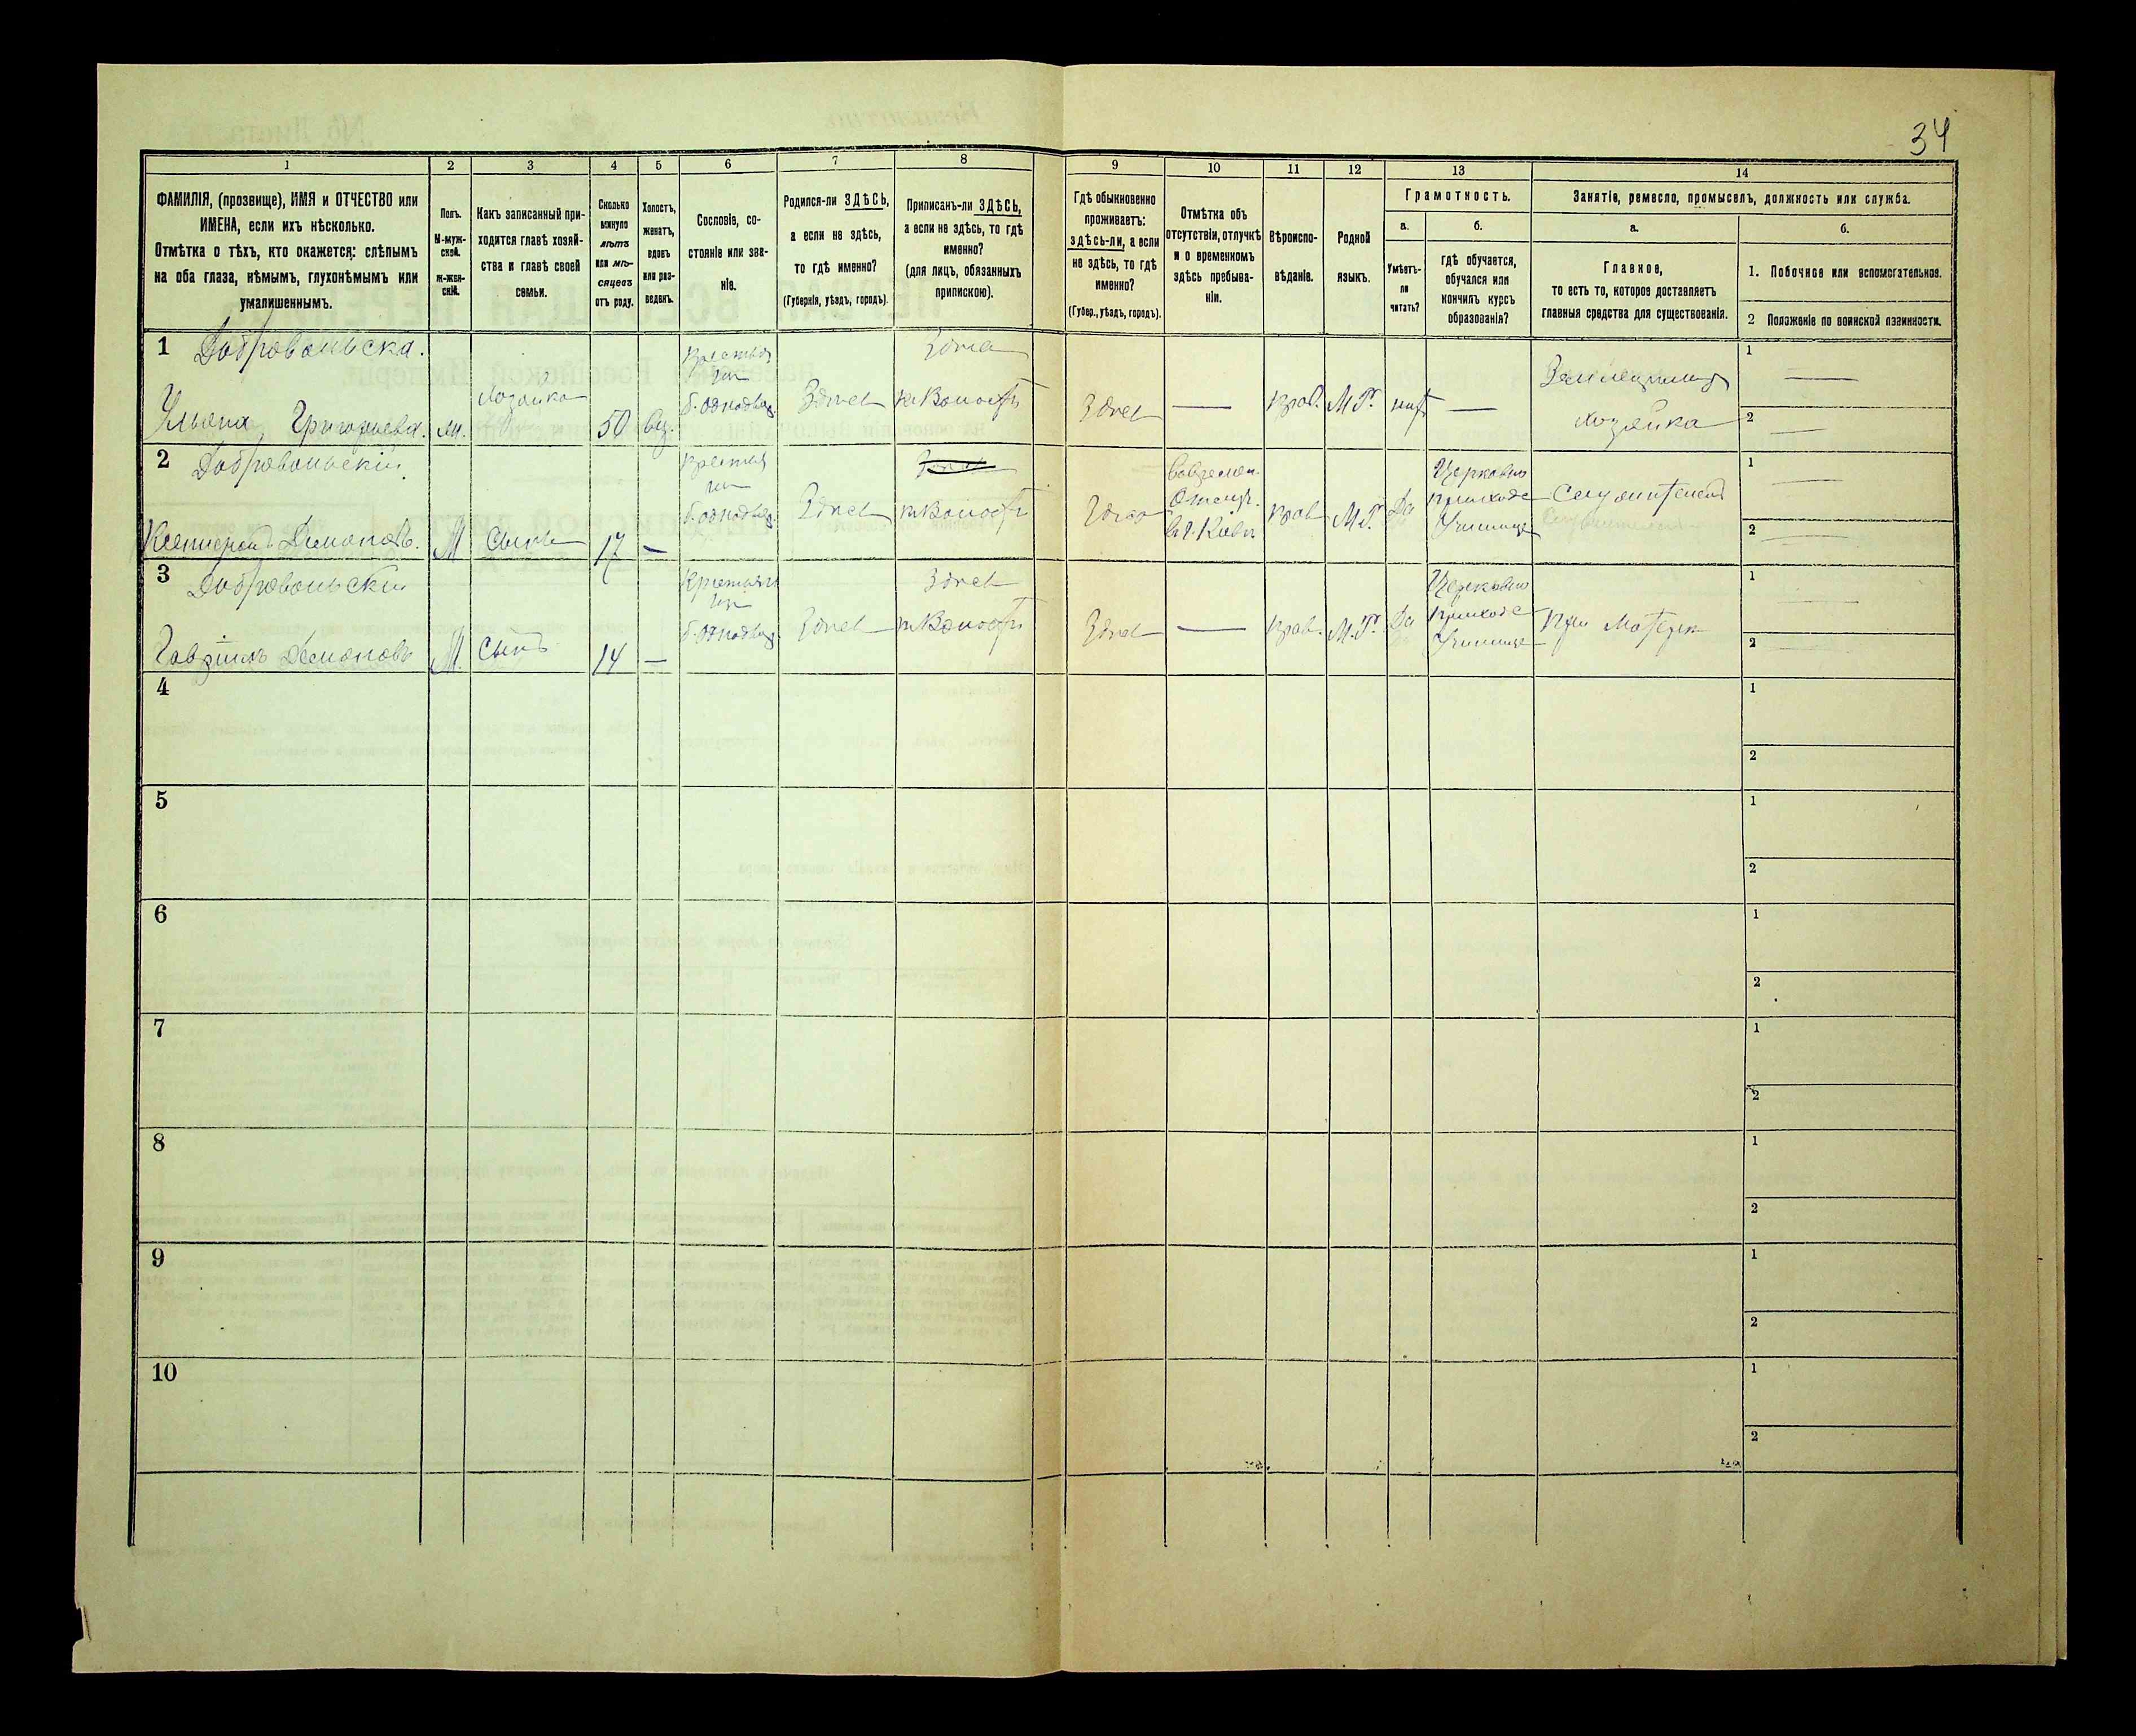 34
1
2
3
4
5
6
7
8
9
10
11
12
13
14
ФАМИЛІЯ, (прозвище), ИМЯ и ОТЧЕСТВО или
ИМЕНА, если ихъ нѣсколько.
Отмѣтка о тѣхъ, кто окажется: слѣпымъ
на оба глаза, нѣмымъ, глухонѣмымъ или
умалишеннымъ.
Полъ.
М-муж-
ской.
Ж-жен-
скій.
Какъ записанный при-
ходится главѣ хозяй-
ства и главѣ своей
семьи.
Сколько
минуло
лѣтъ
или мѣ-
сяцевъ
отъ роду.
Холостъ,
женатъ,
вдовъ
или раз-
веденъ.
Сословіе, со-
стояніе или зва-
ніе.
Родился-ли ЗДѢСЬ,
а если не здѣсь,
то гдѣ именно?
(Губернія, уѣздъ, городъ).
Приписанъ-ли ЗДѢСЬ,
а если не здѣсь, то гдѣ
именно?
(для лицъ, обязанныхъ
припискою).
Гдѣ обыкновенно
проживаетъ:
здѣсь-ли, а если
не здѣсь, то гдѣ
именно?
(Губер., уѣздъ, городъ).
Отмѣтка объ
отсутствіи, отлучкѣ
и о временномъ
здѣсь пребыва-
ніи.
Вѣроиспо-
вѣданіе.
Родной
языкъ.
Грамотность.
а.
Умѣетъ-
ли
читать?
б.
гдѣ обучается,
обучался или
кончилъ курсъ
образованія?
Занятіе, ремесло, промыселъ, должность или служба.
а.
Главное,
то есть то, которое доставляетъ
главныя средства для существованія.
б.
1. Побочное или вспомогательное.
2 Положеніе по воинской повинности.
1
Добровольска.
Ульяна Григорьева.
хозяйка
50
вд.
б. однодвор.
Здѣсь
къ Волости
Здѣсь
прав.
М. Р.
нѣтъ
хозяйка
1
2
2
Добровольскій
М
Сынъ
17
б. однодвор.
Здѣсь
къ Волости
прав
М. Р.
Да
Церковно
приходс
Училище
1
2
3
Добровольскій
Гавріилъ
М.
Сынъ
14
б. однодвор
Здѣсь
Здѣсь
къ Волости
Здѣсь
прав.
М. Р.
Да
Церковно
приходс
Училище
При Матери
1
2
4
1
2
5
1
2
6
1
2
7
1
2
8
1
2
9
1
2
10
1
2